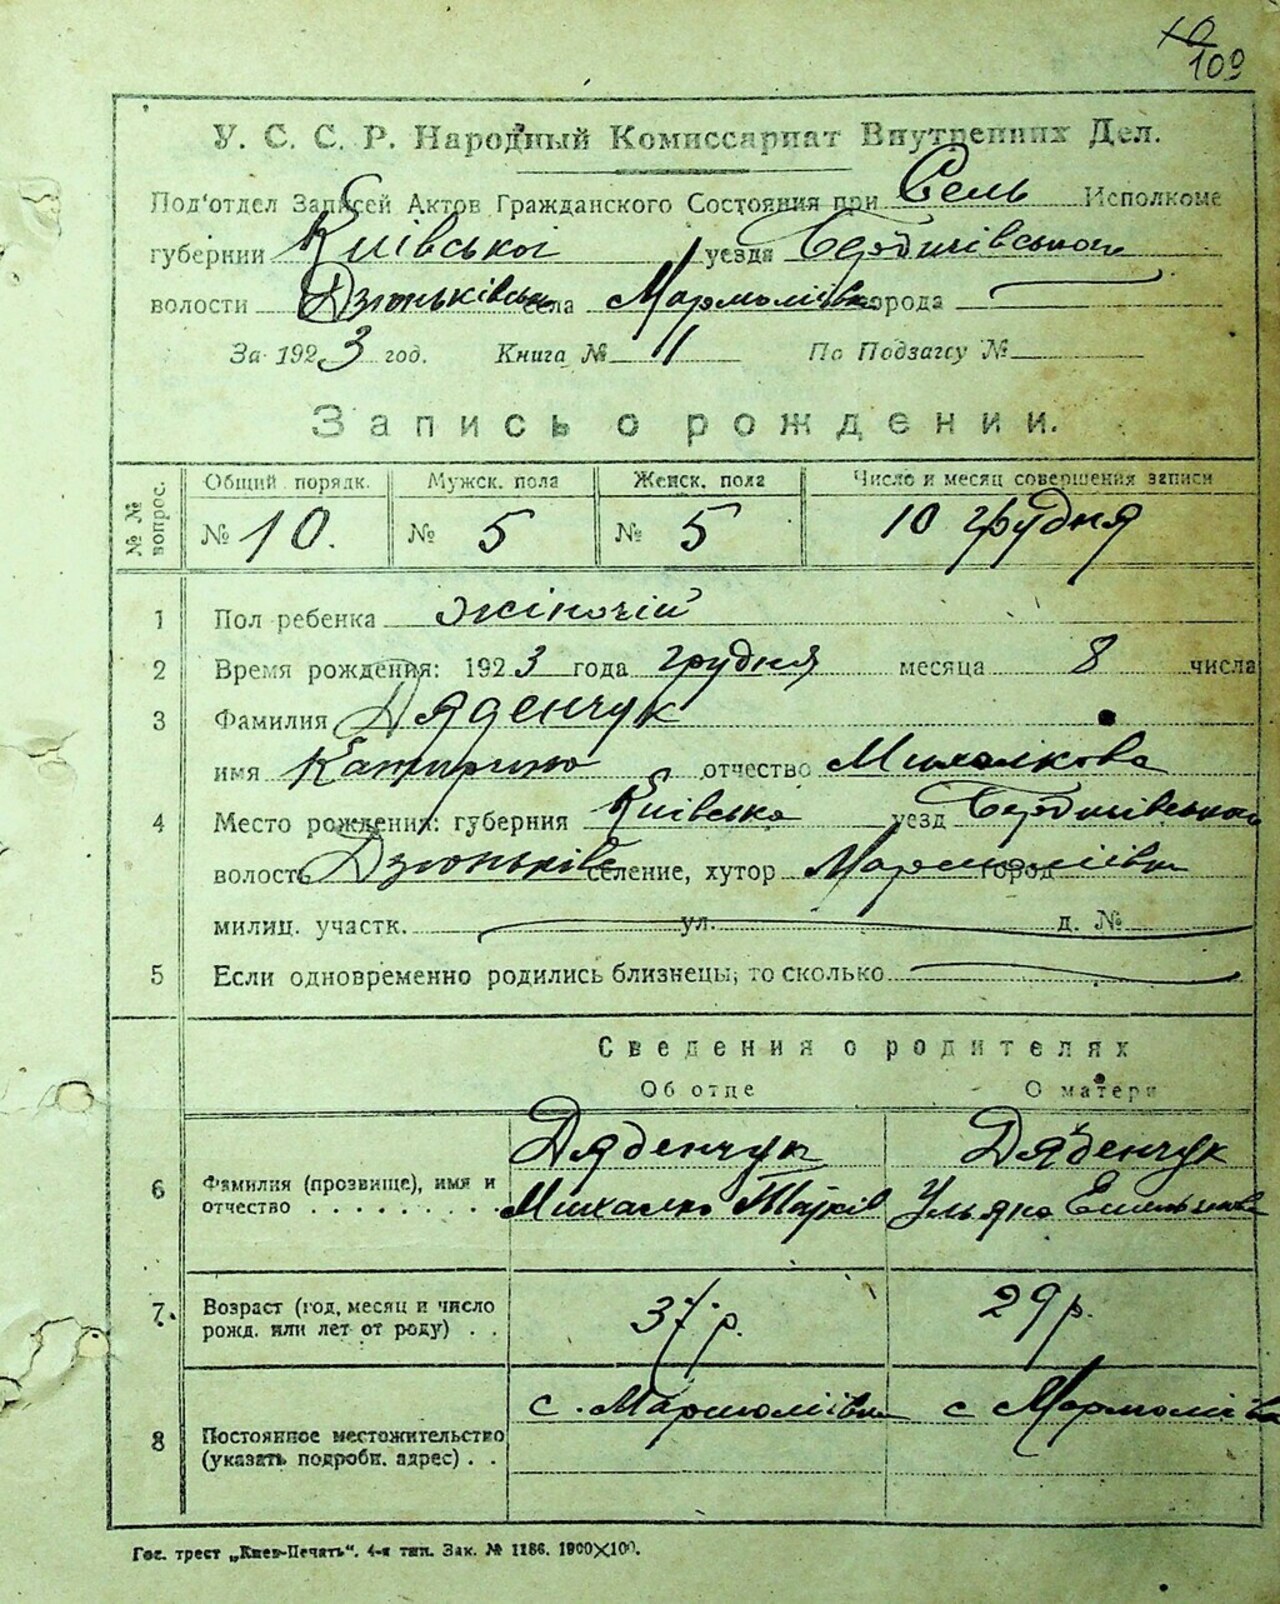 109
У. С. С. Р. Народный Комиссариат Внутренних Дел.
Под'отдел Записей Актов Гражданского Состояния при Сель Исполкоме
губернии Київської уезда Бердичівського
волости Дзюньківськ села Мармоліївка города
За 1923 год. Книга № 1 По Подзагсу №
Запись о рождении.
№ № вопрос. Общий порядк. Мужск. пола Женск. пола Число и месяц совершения записи
№ 10. № 5 № 5 10 грудня
1 Пол ребенка жіночій
2 Время рождения: 1923 года грудня месяца 8 числа
3 Фамилия Дяденчук
имя Катирина отчество Михалкова
4 Место рождения: губерния Київська уезд Бердичівського
волость Дзюньків селение, хутор Мармоліївка город
милиц. участк. ул. д. №
5 Если одновременно родились близнецы, то сколько
Сведения о родителях
Об отце О матери
Дяденчук Дяденчук
6 Фамилия (прозвище), имя и
отчество . . . . . . . . . Михалко Ульяна
7. Возраст (год, месяц и число
рожд. или лет от роду) . . 37 р. 29 р.
с. Мармоліївка с Мармоліївка
8 Постоянное местожительство
(указать подробн. адрес) . .
Гос. трест „Киев-Печать“. 4-я тип. Зак. № 1186. 1900×100.